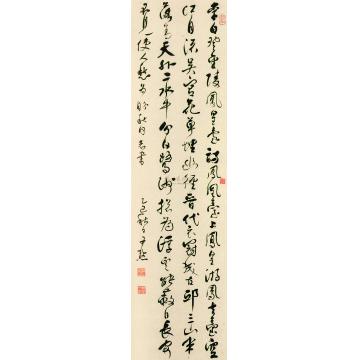 李白登金陵鳳皇臺詩鳳凰臺上鳳皇游鳳去臺空
江自流吳宮花草埋幽徑晉代衣冠成古邱三山半
落青天外二水中分白鷺洲總為浮雲能蔽日長安
不見使人愁
尹默